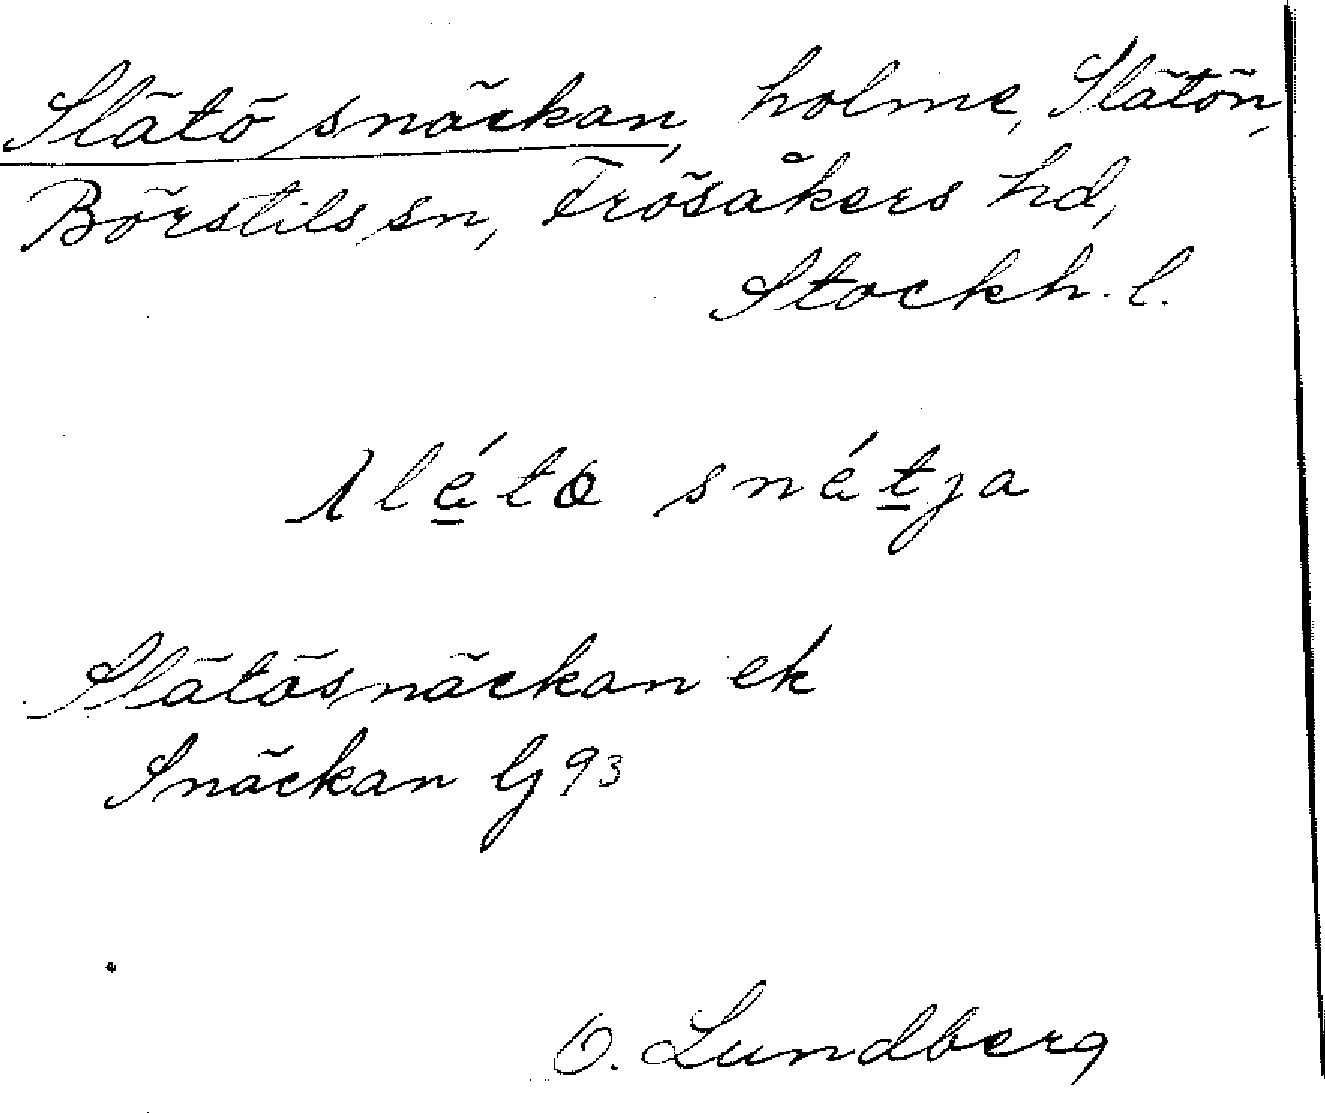 Slätö snäckan, holme, Slätön,
Börstils sn, Frösåkers hd,
Stockh. l.
slé̱tɷ sné̱ṯja
Slätösnäckan ek
Snäckan Gj 93
O. Lundberg